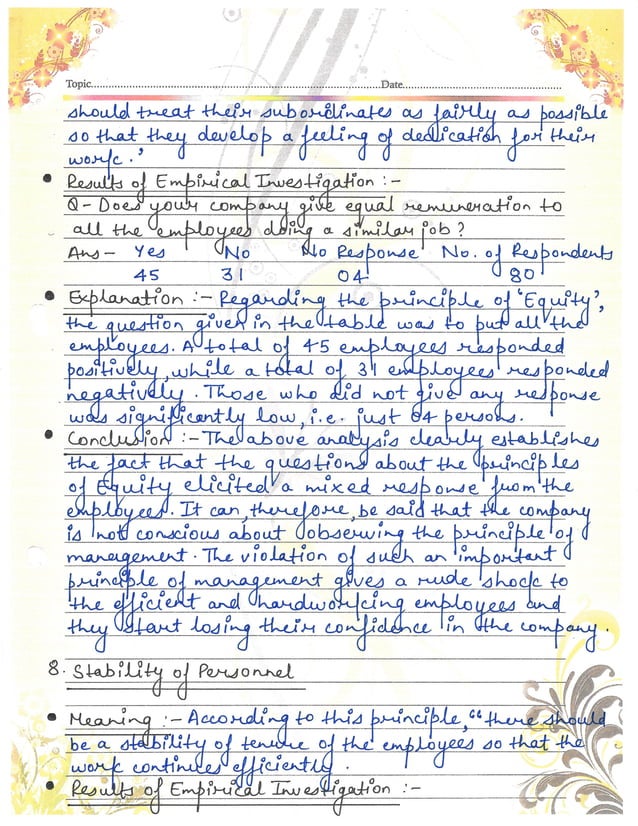 Topic.......... Date..........
should treat their subordinates as fairly as possible
so that they develop a feeling of dedication for their
work.'
• Results of Empirical Investigation :-
Q- Does your company give equal remuneration to
all the employees doing a similar job?
Ans- Yes No No Response No. of Respondents
45 31 04 80
• Explanation :- Regarding the principle of 'Equity',
the question given in the table was to put all the
employees. A total of 45 employees responded
positively, while a total of 31 employees responded
negatively. Those who did not give any response
was significantly low, i.e. just 04 persons.
• Conclusion :- The above analysis clearly establishes
the fact that the questions about the principles
of Equity elicited a mixed response from the
employees. It can, therefore, be said that the company
is not conscious about observing the principle of
management. The violation of such an important
principle of management gives a rude shock to
the efficient and hardworking employees and
they start losing their confidence in the company.
8. Stability of Personnel
• Meaning :- According to this principle, "there should
be a stability of tenure of the employees so that the
work continues efficiently.
• Results of Empirical Investigation :-